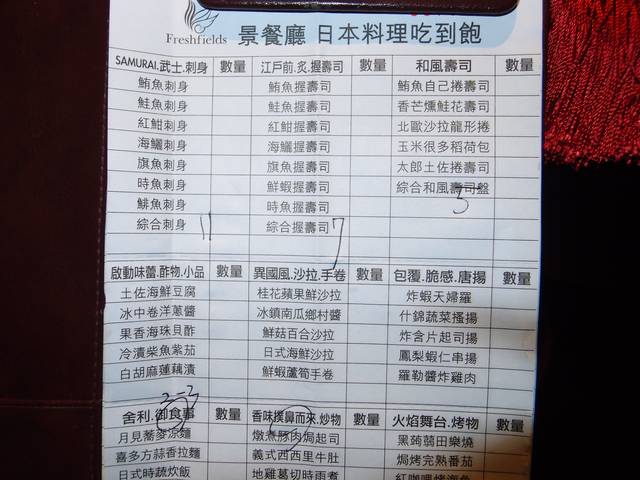 Freshfields 景餐廳 日本料理吃到飽
SAMURAI.武士.刺身 數量 江戶前.炙.握壽司 數量 和風壽司 數量
鮪魚刺身 鮪魚握壽司 鮪魚自己捲壽司
鮭魚刺身 鮭魚握壽司 香芒燻鮭花壽司
紅魽刺身 紅魽握壽司 北歐沙拉龍形捲
海鱺刺身 海鱺握壽司 玉米很多稻荷包
旗魚刺身 旗魚握壽司 太郎土佐捲壽司
時魚刺身 鮮蝦握壽司 綜合和風壽司盤 5
鯡魚刺身 時魚握壽司
綜合刺身 11 綜合握壽司 7
啟動味蕾.酢物.小品 數量 異國風.沙拉.手卷 數量 包覆.脆感.唐揚 數量
土佐海鮮豆腐 桂花蘋果鮮沙拉 炸蝦天婦羅
冰中卷洋蔥醬 冰鎮南瓜鄉村醬 什錦蔬菜搔揚
果香海珠貝酢 鮮菇百合沙拉 炸含片起司揚
冷漬柴魚紫茄 日式海鮮沙拉 鳳梨蝦仁串揚
白胡麻蓮藕漬 鮮蝦蘆筍手卷 羅勒醬炸雞肉
舍利.御食事 數量 香味撲鼻而來.炒物 數量 火焰舞台.烤物 數量
月見蕎麥涼麵 燉煮豚肉焗起司 黑蒟蒻田樂燒
喜多方蒜香拉麵 義式西西里牛肚 焗烤完熟番茄
日式時蔬炊飯 地雞葛切時雨煮 紅咖哩烤海魚